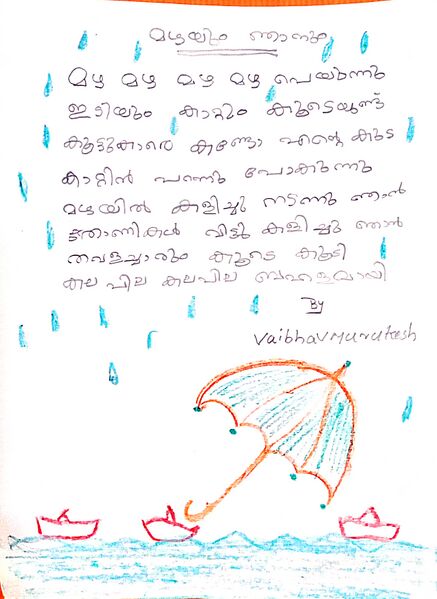 മഴയും ഞാനും
മഴ മഴ മഴ മഴ പെയ്യുന്നു
ഇടിയും കാറ്റും കൂടെയുണ്ട്
കൂട്ടുകാരെ കണ്ടോ എന്റെ കുട
കാറ്റിൻ പറന്നു പോകുന്നു
മഴയിൽ കളിച്ചു നടന്നു ഞാൻ
തോണികൾ വിട്ടു കളിച്ചു ഞാൻ
തവളച്ചാരും കൂടെ കൂടി
കലപില കലപില ബഹളമായി
By
Vaibhav Murukesh